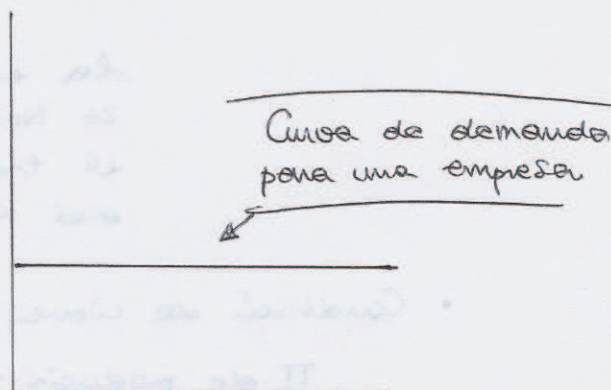 Curva de demanda
para una empresa